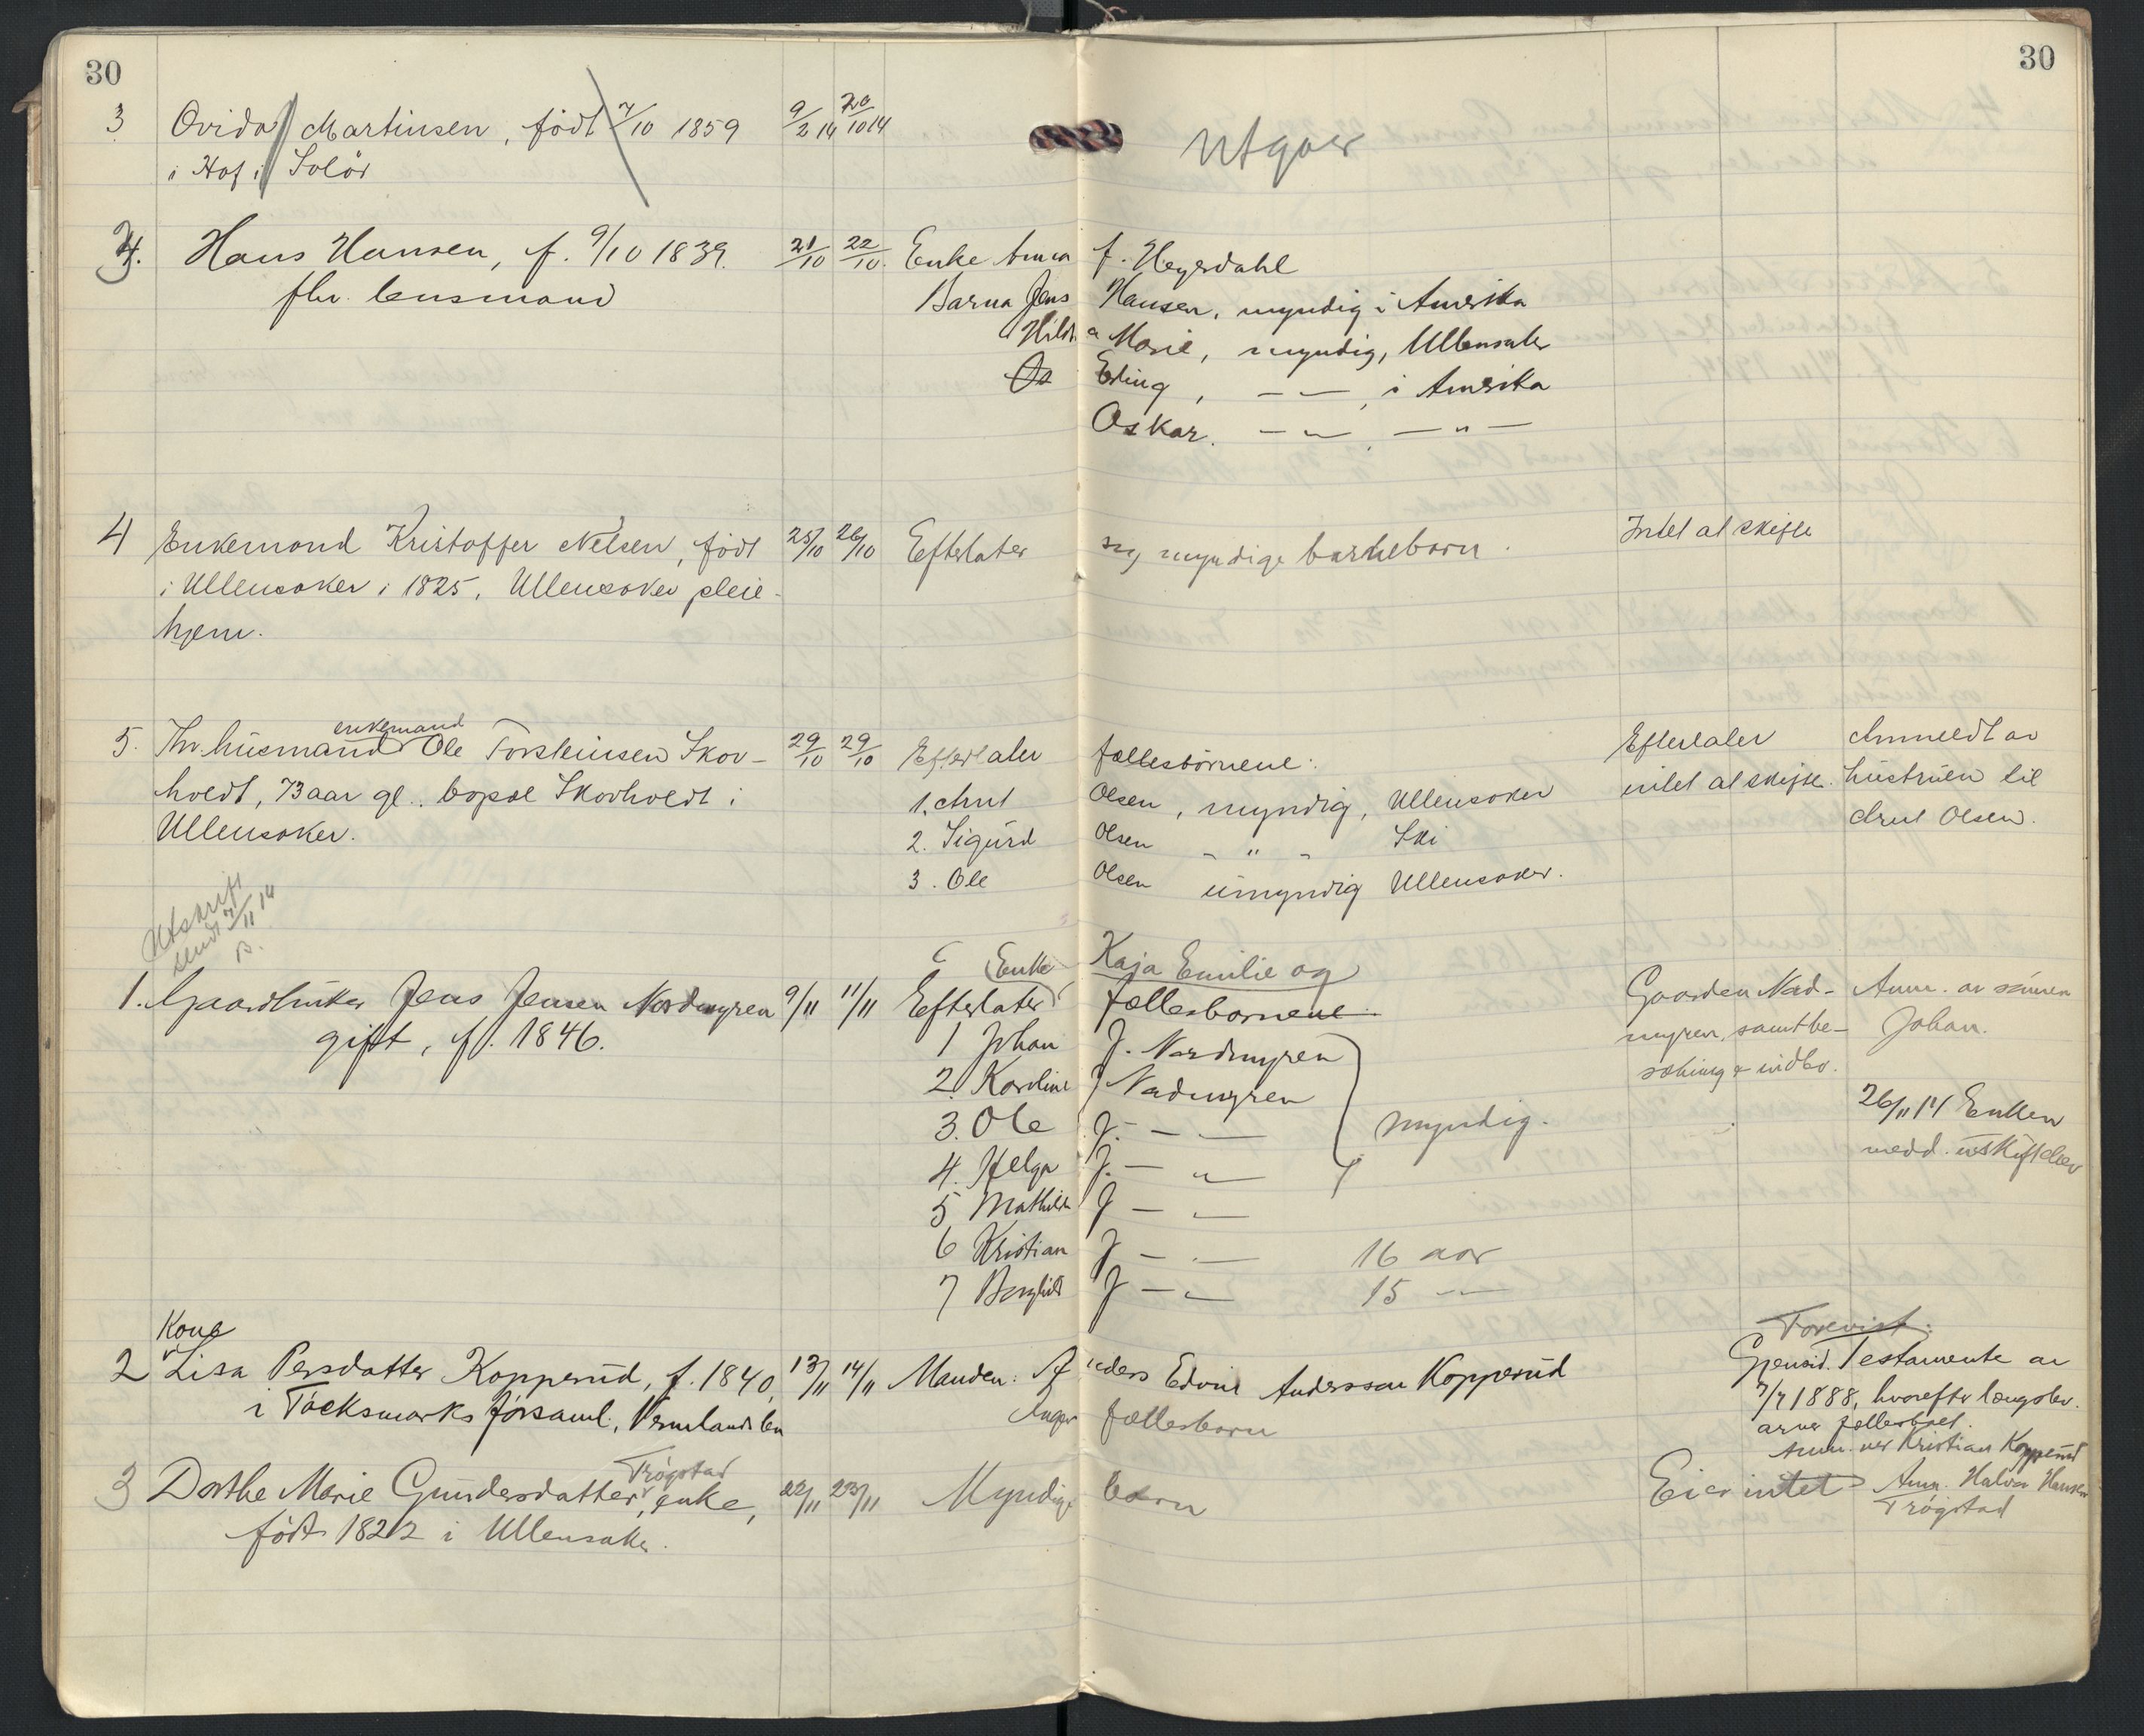 30 30
3 Ovida Martinsen, født 7/10 1859 9/2 14 20/10 14 Utgaar
i Hof i Solör
3. Hans Hansen, f. 9/10 1839. 21/10 22/10. Enke Anna f. Heyerdahl
fhv. lensmand Barna Jens Hansen, myndig i Amerika
Hilda Marie, myndig, Ullensaker
Os Erling, — — , i Amerika
Oskar. — — , — " —
4 Enkemand Kristoffer Nelsen, født 25/10 26/10 Efterlater sig myndige barnebørn. Intet at skifte
i Ullensaker i 1825, Ullensaker pleie-
hjem.
enkemand
5. Fhv. husmand Ole Torsteinsen Skov- 29/10 29/10 Efterlater fællesbörnene: Efterlater Anmeldt av
holdt, 73 aar gl., bopæl Skovholdt i 1. Olsen, myndig, Ullensaker intet at skifte. hustruen til
Ullensaker. 2. Sigurd Olsen - " - Ski Olsen.
3. Ole Olsen umyndig Ullensaker.
Utskrift
sendt 7/11 14
B.
(Enke Kaja Emilie og
1. Gaardbruker Jens Jensen Nordmyren 9/11 11/11 Efterlater) fællesbørnene. Gaarden Nord- Anm. av sønnen
gift, f. 1846. 1 Johan J. Nordmyren myren, samt be- Johan.
2. Karoline J Nordmyren sætning & indbo.
3. Ole J. — — myndig. 26/11 14 Enken
4. Helga J. — " — medd. uskiftebev
5 Mathilde J — " —
6 Kristian J — — 16 aar
7 Borghild J — " — 15 —
Kone Forevist:
2 Lisa Persdatter Kopperud, f. 1840, 13/11 14/11 Manden: Anders Edvin Anderssen Kopperud Gjensid. Testamente av
i Töcksmarks församl., Vermlands len Ingen fællesbørn 7/7 1888, hvorefter længstlev.
arver fællesboet.
Anm. ved Kristian Kopperud
Trögstad
3 Dorthe Marie Gundersdatter, enke, 22/11 23/11 Myndige børn Eier intet Anm. Halvor Hansen
født 1822 i Ullensaker. Trögstad